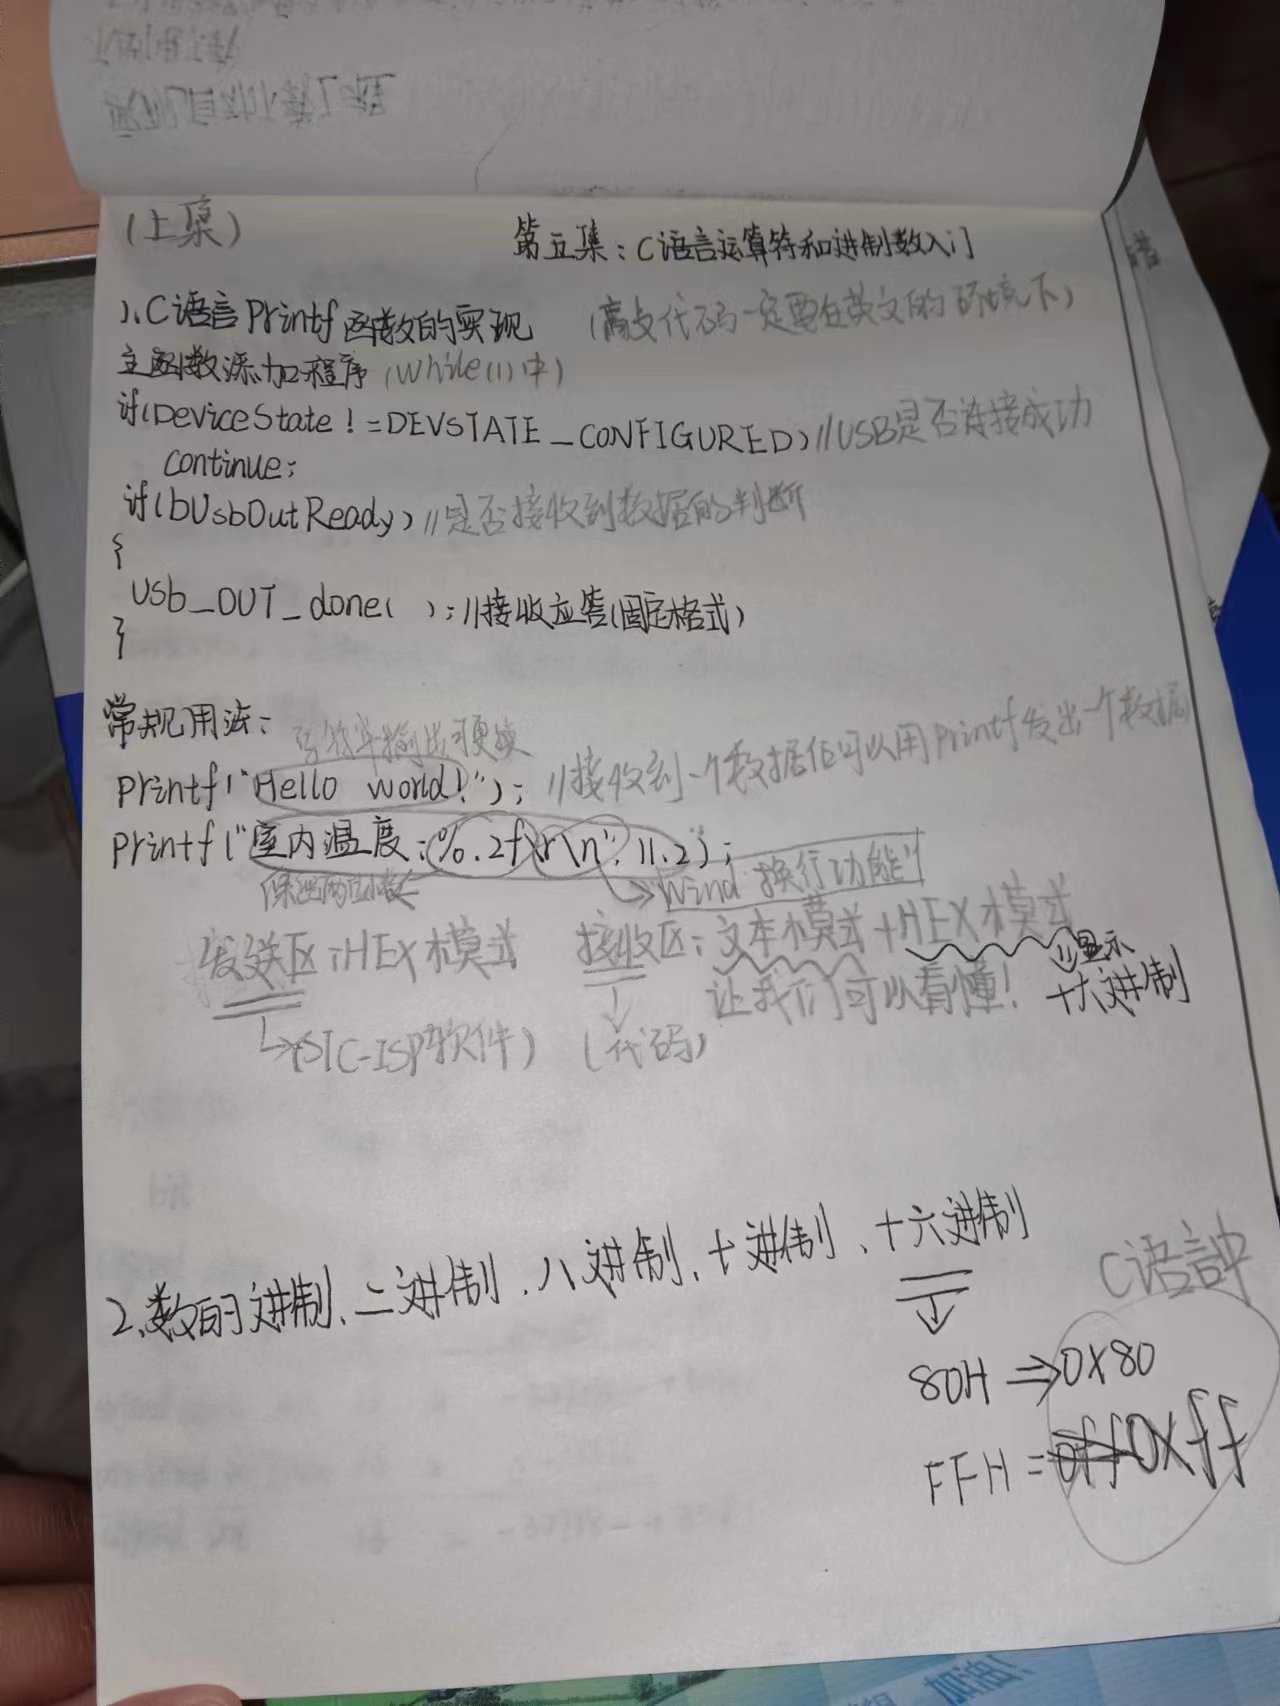 (上集)
第五集：C语言运算符和进制数入门
1、C语言Printf函数的实现 (高支代码一定要在英文的环境下)
主函数添加程序 (While(1)中)
if(DeviceState!=DEVSTATE_CONFIGURED) //USB是否连接成功
continue;
if(bUsbOutReady) //是否接收到数据的判断
{
usb_OUT_done( ); //接收应答(固定格式)
}
常规用法：
字符串输出可更换
printf("Hello world!"); //接收到一个数据值可以用printf发出一个数据
printf("室内温度:%.2f\r\n", 11.2);
保留两位小数
Wind 换行功能
发送区:HEX模式 接收区:文本模式+HEX模式
//显示
让我们可以看懂! 十六进制
(STC-ISP软件) (代码)
2、数的进制、二进制、八进制、十进制、十六进制
C语言中
80H ⇒0X80
FFH = 0Xff